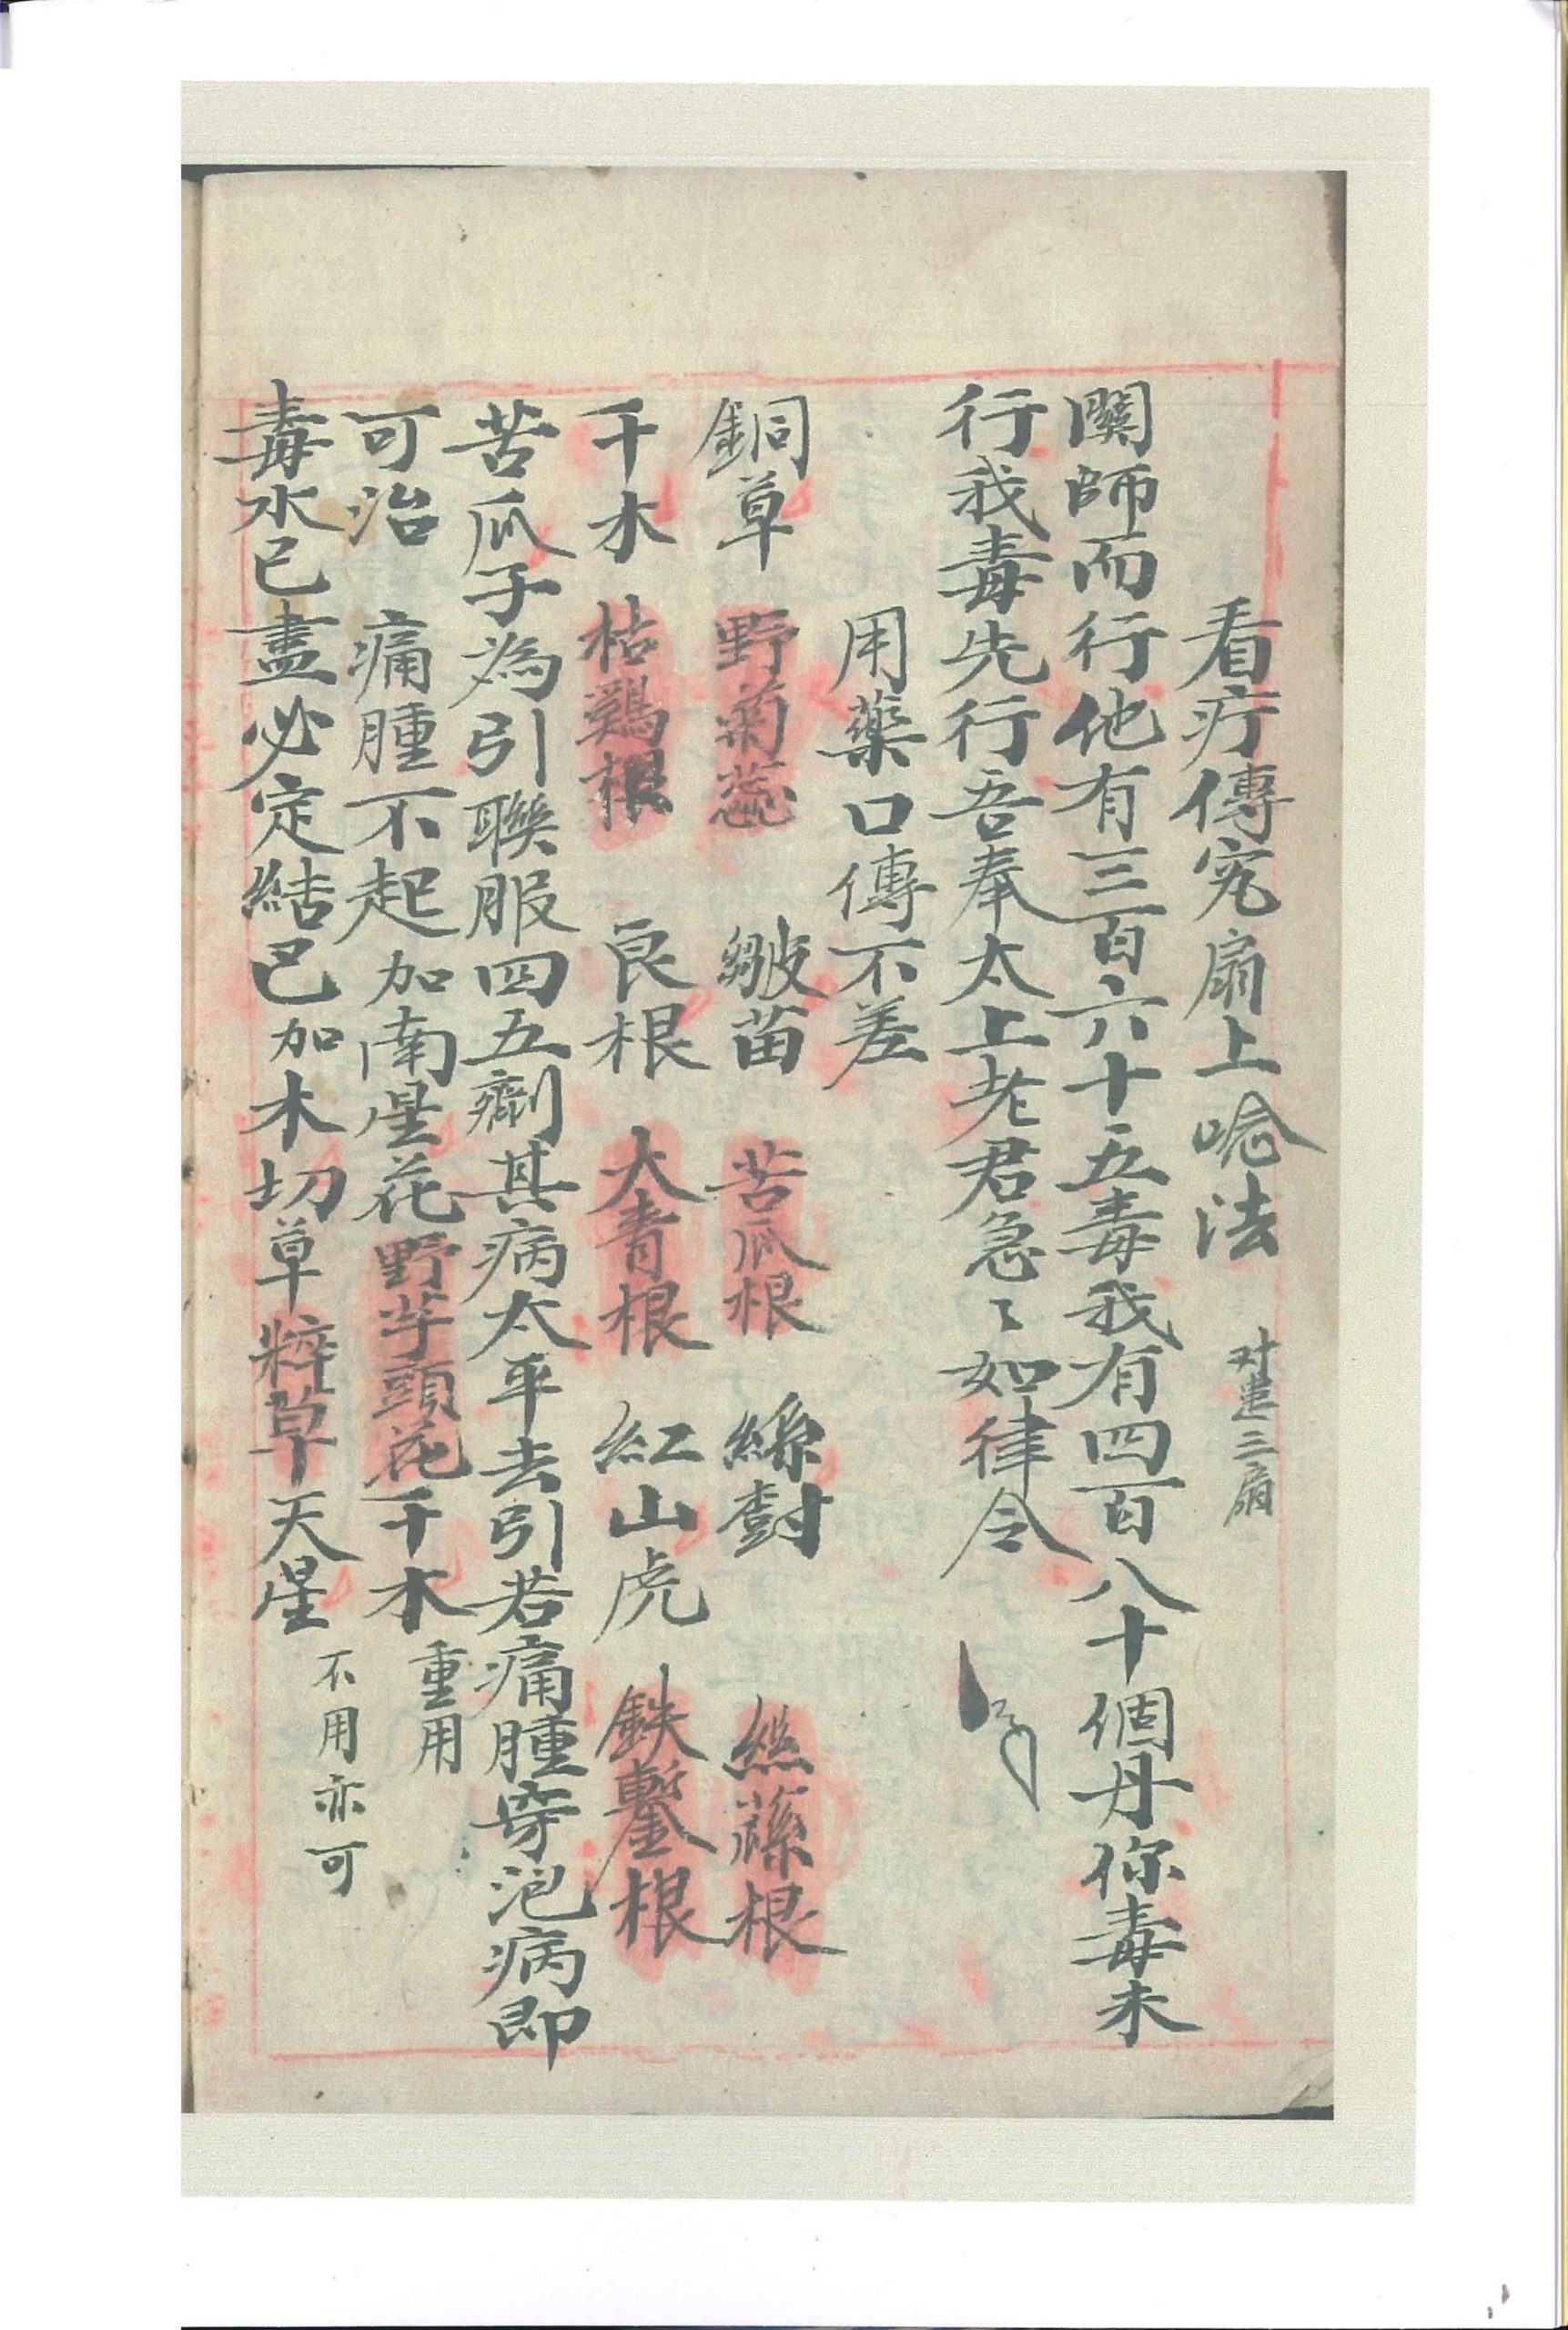 看疔傳完扇上唸法 对患三扇
關師而行他有三百六十五毒我有四百八十個丹你毒未
行我毒先行吾奉太上老君急〻如律令
用藥口傳不差
銅草 野菊蕊 皺苗 苦瓜根 絲對 絲藤根
千水 枯鷄根 良根 大青根 紅山虎 鉄鑿根
苦瓜子為引聯服四五劑其病太平去引若痛腫穿泡病即
可治 痛腫不起加南星花野芋頭花千木重用
毒水已盡必定結已加木切草粹草天星不用亦可